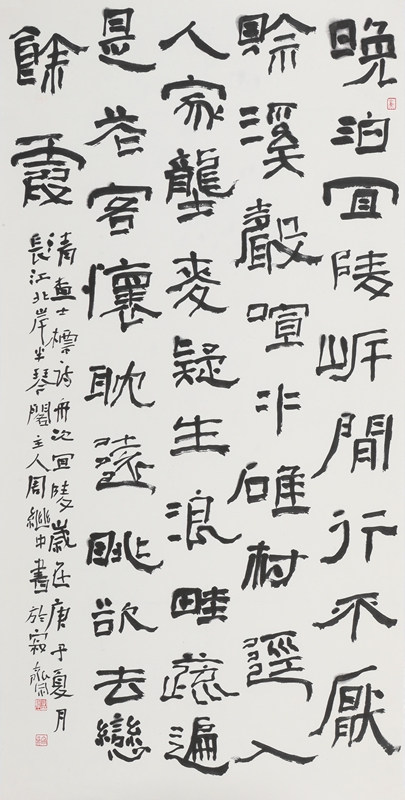 晚泊宜陵岸閒行不厭
賒溪聲喧非碓村逕入
人家壟麥疑生浪畦蔬遍
是花客懷耽遠眺欲去戀
餘霞
清查士標詩舟次宜陵歲在庚子夏月
長江北岸半琴閣主人周繼中書於寂